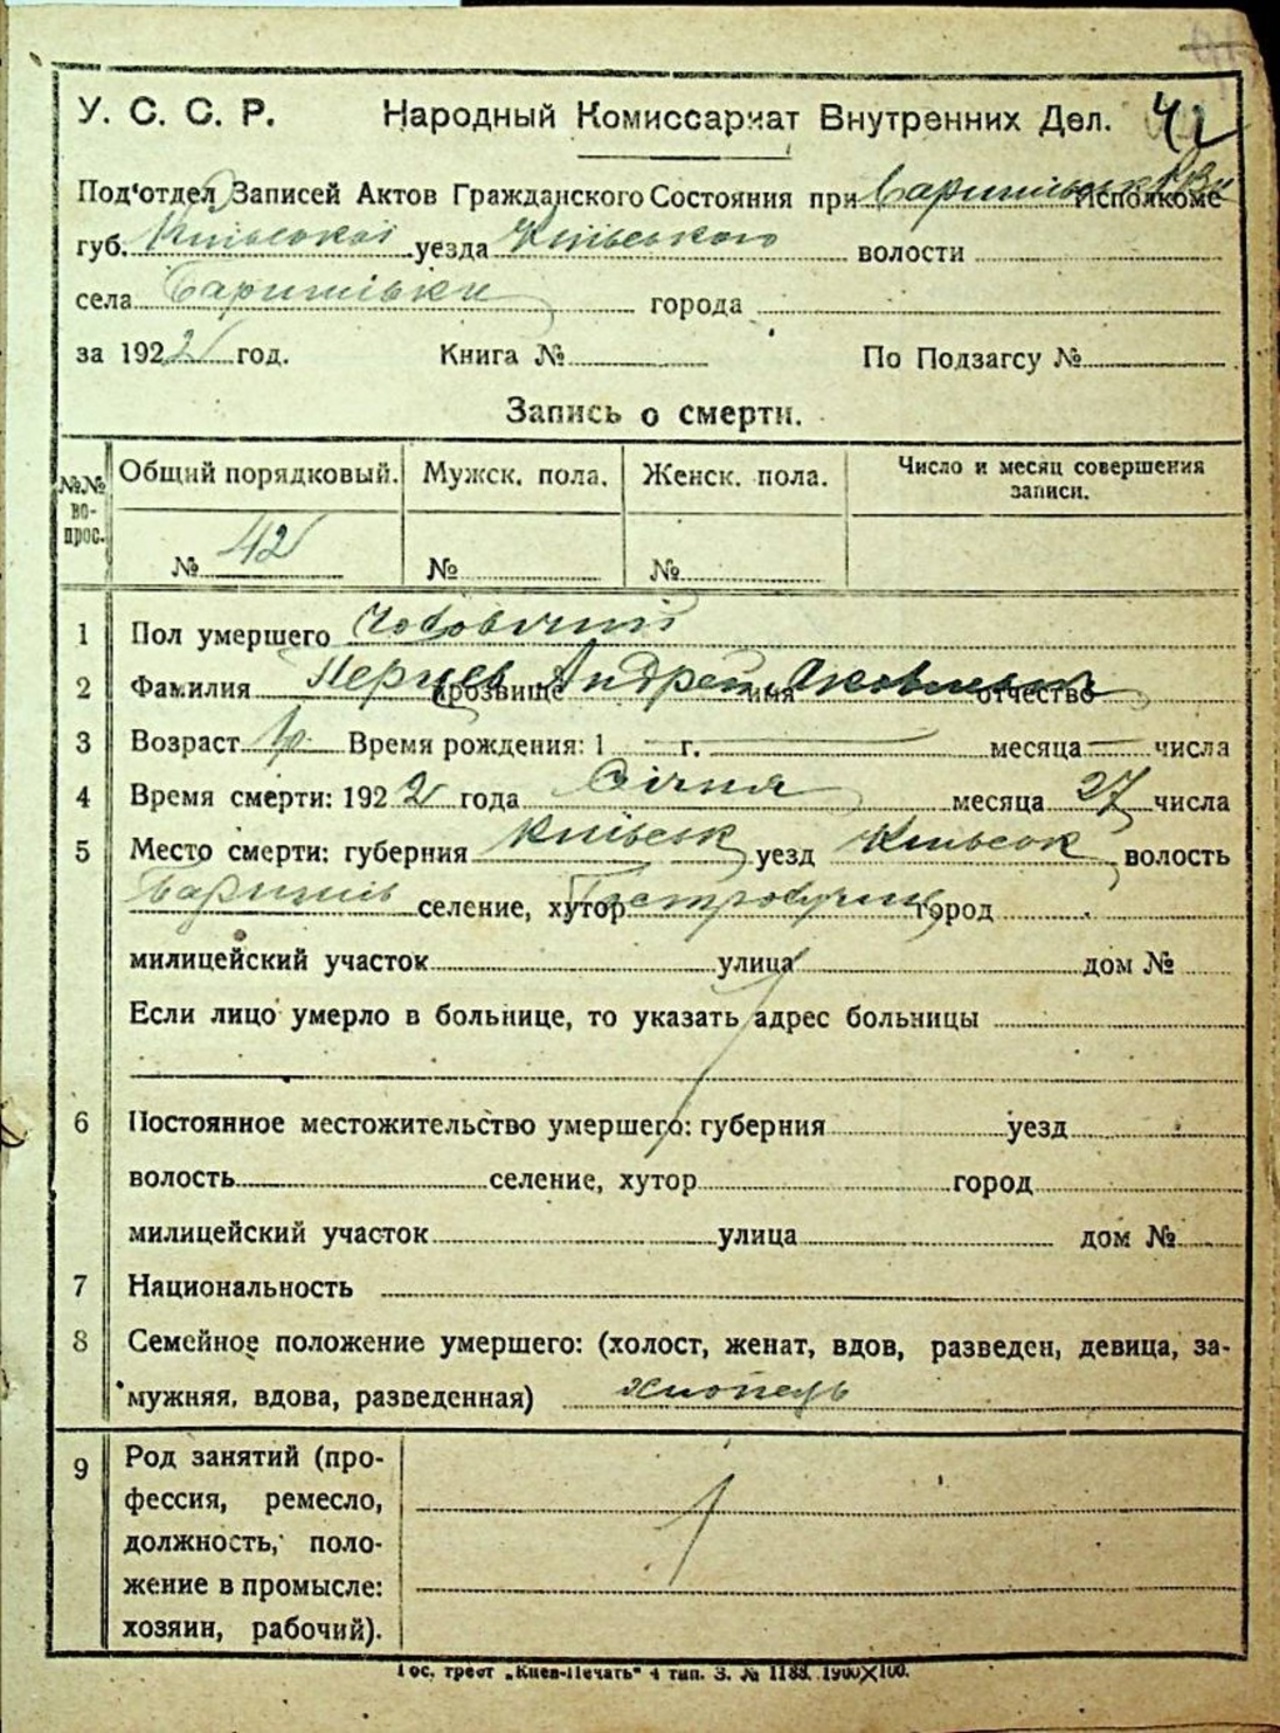 У. С. С. Р. Народный Комиссариат Внутренних Дел. 42
Под'отдел Записей Актов Гражданского Состояния при Исполкоме
губ. Київської уезда Київського волости
села Баришівки города
за 1922 год. Книга № По Подзагсу №
Запись о смерти.
№№ во-прос. Общий порядковый. Мужск. пола. Женск. пола. Число и месяц совершения записи.
№ 42 № №
1 Пол умершего Чоловічий
2 Фамилия Перцев прозвище Андрей имя Яковлевич отчество
3 Возраст Время рождения: 1 г. месяца числа
4 Время смерти: 1922 года Січня месяца 27 числа
5 Место смерти: губерния Київськ уезд Київськ волость
Баришів селение, хутор город
милицейский участок улица дом №
Если лицо умерло в больнице, то указать адрес больницы
6 Постоянное местожительство умершего: губерния уезд
волость селение, хутор город
милицейский участок улица дом №
7 Национальность
8 Семейное положение умершего: (холост, женат, вдов, разведен, девица, за-
мужняя, вдова, разведенная) хлопець
9 Род занятий (про-
фессия, ремесло,
должность, поло-
жение в промысле:
хозяин, рабочий).
Гос. трест „Киев-Печать" 4 тип. З. № 1188. 1900✕100.